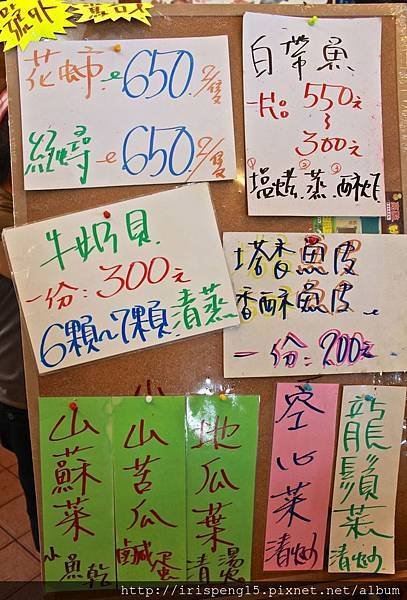 號外
花蟳 650元/隻
紅蟳 650元/隻
白帶魚
一片 550元
~
300元
①塩烤 ②蒸 ③酥炸
牛奶貝
一份:300元
6顆~7顆 清蒸
塔香魚皮
香酥魚皮
一份:200元
山蘇菜
小魚乾
山苦瓜
鹹蛋
地瓜葉
清燙
空心菜
清炒
龍鬚菜
清炒
http://irispeng15.pixnet.net/album